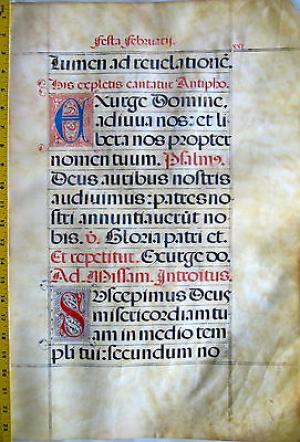 Festa Februarij.
xxi
Lumen ad reuelationē.
His expletis cantatur Antipho.
EXurge Domine,
adiuua nos: et li
bera nos propter
nomen tuum. Psalmꝰ.
Deus auribus nostris
audiuimus: patres no
stri annuntiauerūt no
bis. ℣. Gloria patri et.
Et repetitur. Exurge do.
Ad Missam. Introitus.
SVscepimus Deus
misericordiam tu
am in medio tem
pli tui: secundum no